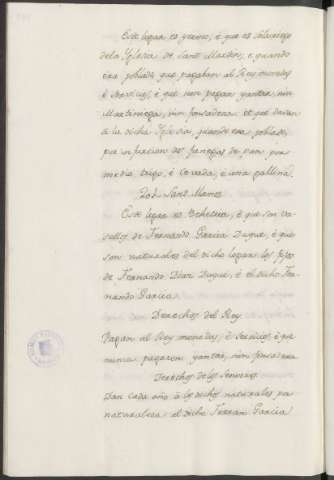 Este logar es yermo, è que es solariego
dela Yglesia de Sant Martin, è quando
era poblado que pagaban al Rey monedas
è Servicios, è que non pagan yantar, nin
Martiniega, nin fonsadera et que davan
à la dicha Yglesia, quando era poblado,
por infurcion dos fanegas de pan por
medio trigo, è Cevada, è una gallina.
Sant Mames
Este logar es Behetria, è que son va-
sallos de Fernando Garcia Duque, è que
son naturales del dicho logar los fijos
de Fernando Diaz Duque, è el dicho Fer-
nando Garcia.
Derechos del Rey
Pagan al Rey monedas, è Servicios, è que
nunca pagaron yantar, nin fonsadera
Derechos de los Señores
Dan cada año à los dichos naturales por
naturaleza al dicho Ferran Garcia